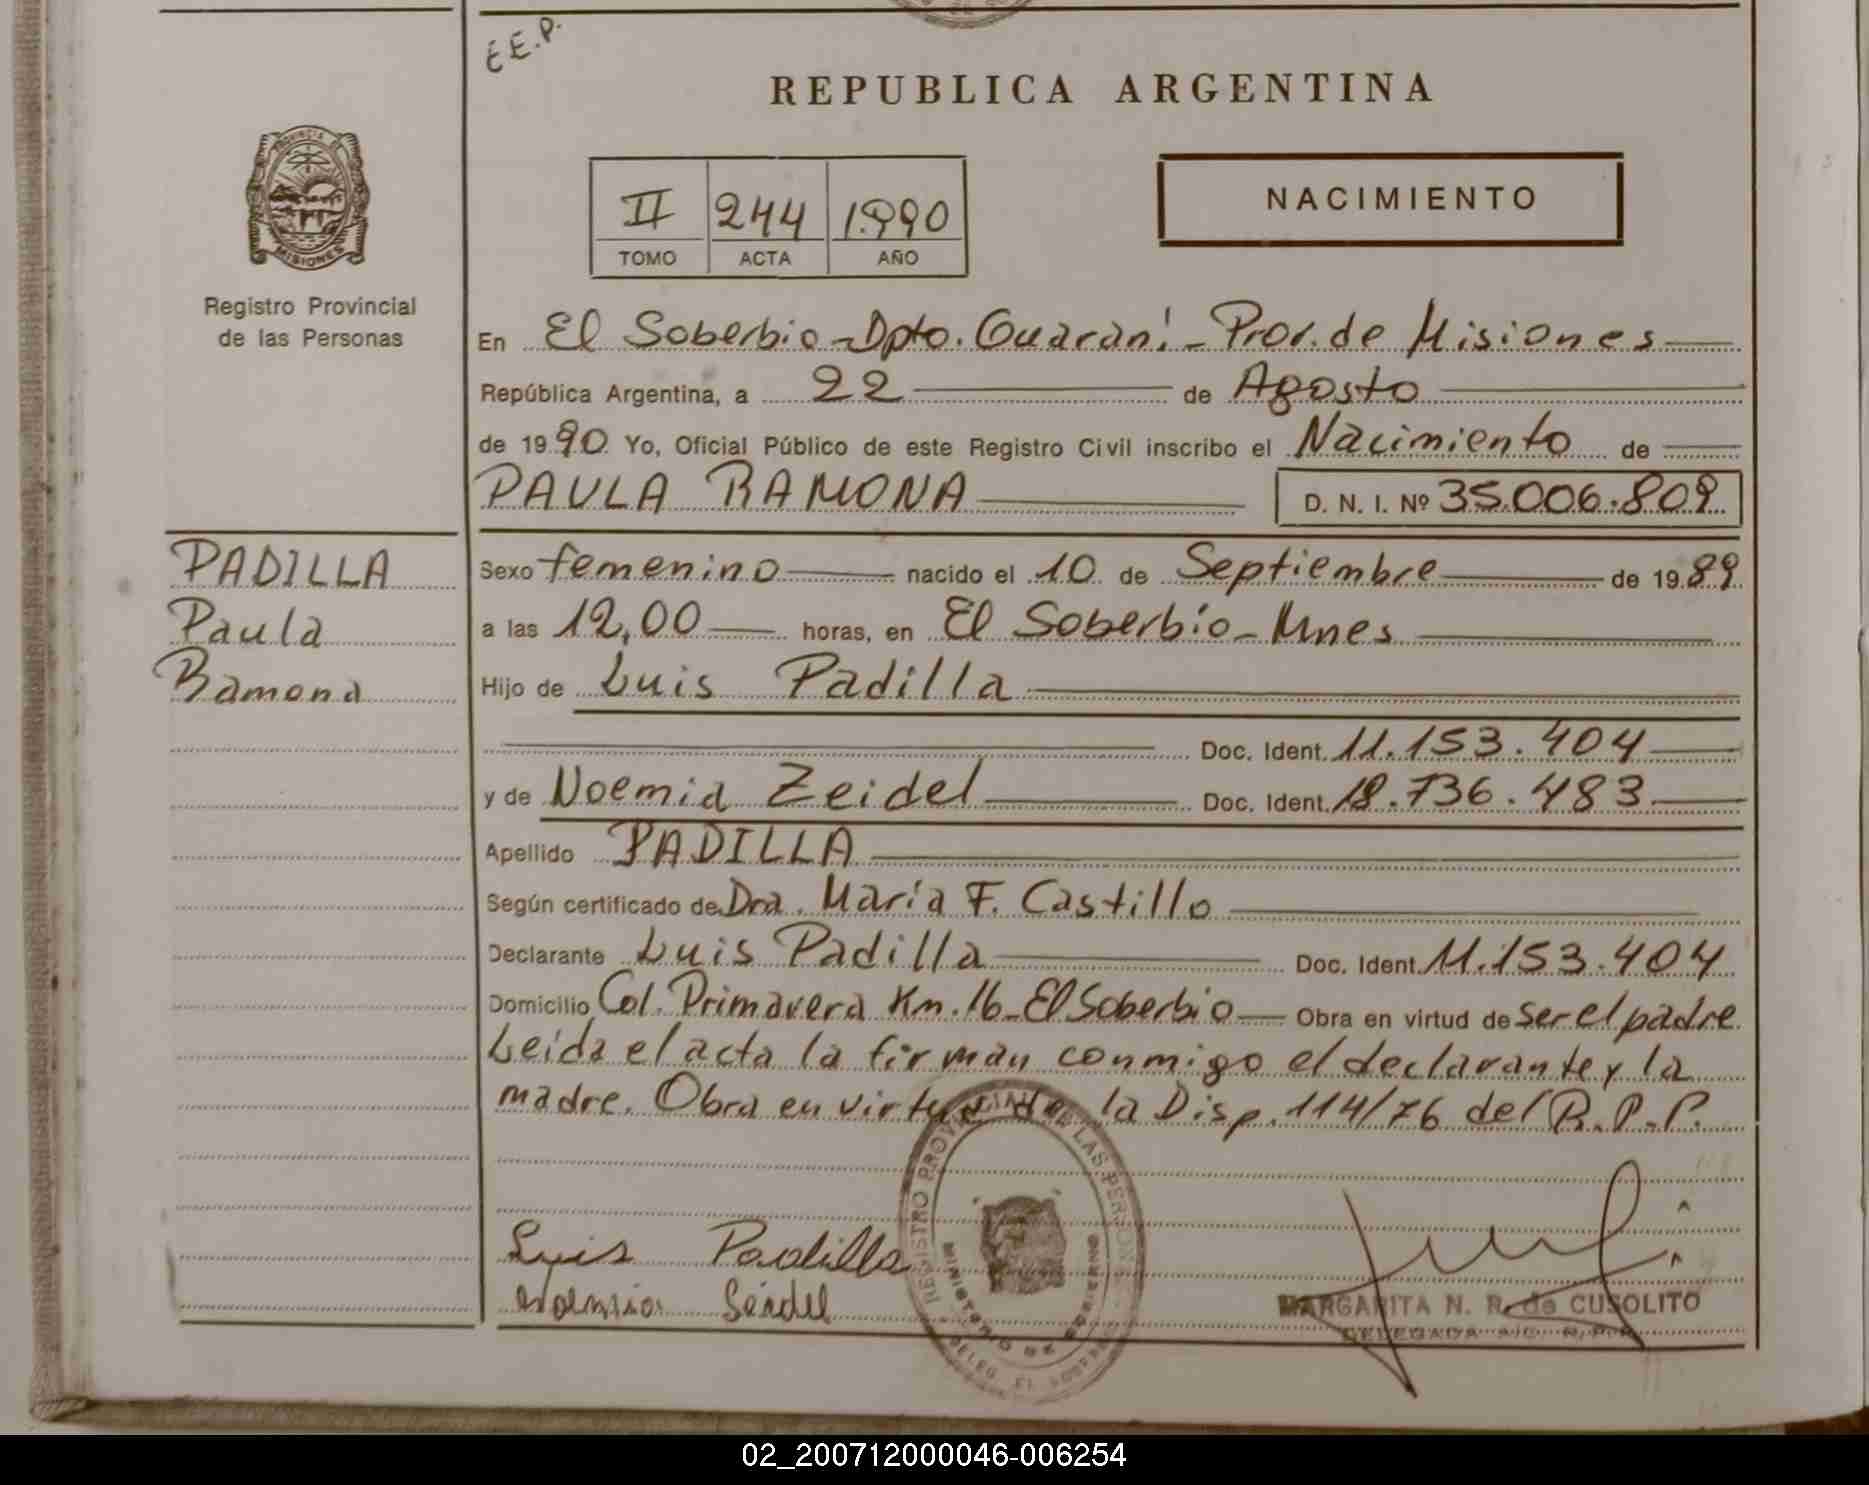 E.E.P.
REPUBLICA ARGENTINA
PROVINCIA DE
MISIONES
Registro Provincial
de las Personas
II 244 1.990
TOMO ACTA AÑO
NACIMIENTO
En El Soberbio - Dpto. Guaraní - Prov. de Misiones
República Argentina, a 22 de Agosto
de 1990 Yo, Oficial Público de este Registro Civil inscribo el Nacimiento de
PAULA RAMONA D. N. I. Nº 35.006.809
PADILLA
Paula
Ramona
Sexo femenino nacido el 10 de Septiembre de 1989
a las 12,00 horas, en El Soberbio - Mnes
Hijo de Luis Padilla
Doc. Ident. 11.153.404
y de Noemia Zeidel Doc. Ident. 18.736.483
Apellido PADILLA
Según certificado de Dra. María F. Castillo
Declarante Luis Padilla Doc. Ident. 11.153.404
Domicilio Col. Primavera Km. 16 - El Soberbio Obra en virtud de ser el padre
Leída el acta la firman conmigo el declarante y la
madre. Obra en virtud de la Disp. 114/76 del R.P.P.
REGISTRO PROVINCIAL DE LAS PERSONAS
MINISTERIO DE GOBIERNO
Luis Padilla
Noemia Seidel
MARGARITA N. R. de CUSOLITO
DELEGADA A/C. R.P.P.
02_200712000046-006254